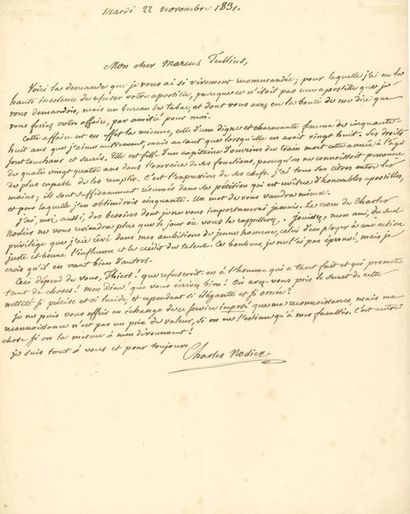 Mardi 22 novembre 1831.
Mon cher Marcus Tullius,
Voici la demande que je vous ai si vivement recommandée; pour laquelle j'ai eu la
haute insolence de refuser votre apostille, parceque ce n'était pas une apostille que je
vous demandois, mais un bureau de tabac, et dont vous avez eu la bonté de me dire que
vous feriez votre affaire, par amitié pour moi.
Cette affaire est en effet la mienne, celle d'une digne et charmante femme de cinquante-
huit ans que j'aime autrement, mais autant que lorsqu'elle en avoit vingt huit. Ses droits
sont touchans et sacrés. Elle est fille d'un capitaine d'ouvriers du train mort cette année à l'âge
de quatre vingt quatre ans dans l'exercice de ses fonctions, parcequ'on ne connoissoit personne
de plus capable de les remplir. C'est l'expression de ses chefs. J'ai tous ses titres entre les
mains; ils sont suffisamment énoncés dans sa pétition qui est revêtue d'honorables apostilles,
et pour laquelle j'en obtiendrois cinquante. Un mot de vous vaudra mieux.
J'ai, moi aussi, des besoins dont je ne vous importunerai jamais. Le nom de Charles
Nodier ne vous reviendra plus que le jour où vous le rappellerez. Jouissez, mon ami, du seul
privilège que j'aie rêvé dans mes ambitions de jeune homme, celui d'employer à une action
juste et bonne l'influence et le crédit du talent. Ce bonheur, je ne l'ai pas éprouvé, mais je
crois qu'il en vaut bien d'autres.
Ceci dépend de vous, Thiers! que refuseroit-on à l'homme qui a tant fait et qui promet
tant de choses! mon dieu! que vous écrivez bien! Où avez-vous pris le secret de cette
netteté si précise et si lucide, et cependant si élégante et si ornée!
Je ne puis vous offrir en échange de ce service que ma reconnoissance, mais ma
reconnoissance n'est pas un prix de valeur, si on ne l'estime qu'à mes facultés. C'est autre
chose si on la mesure à mon dévouement!
Je suis tout à vous et pour toujours
Charles Nodier